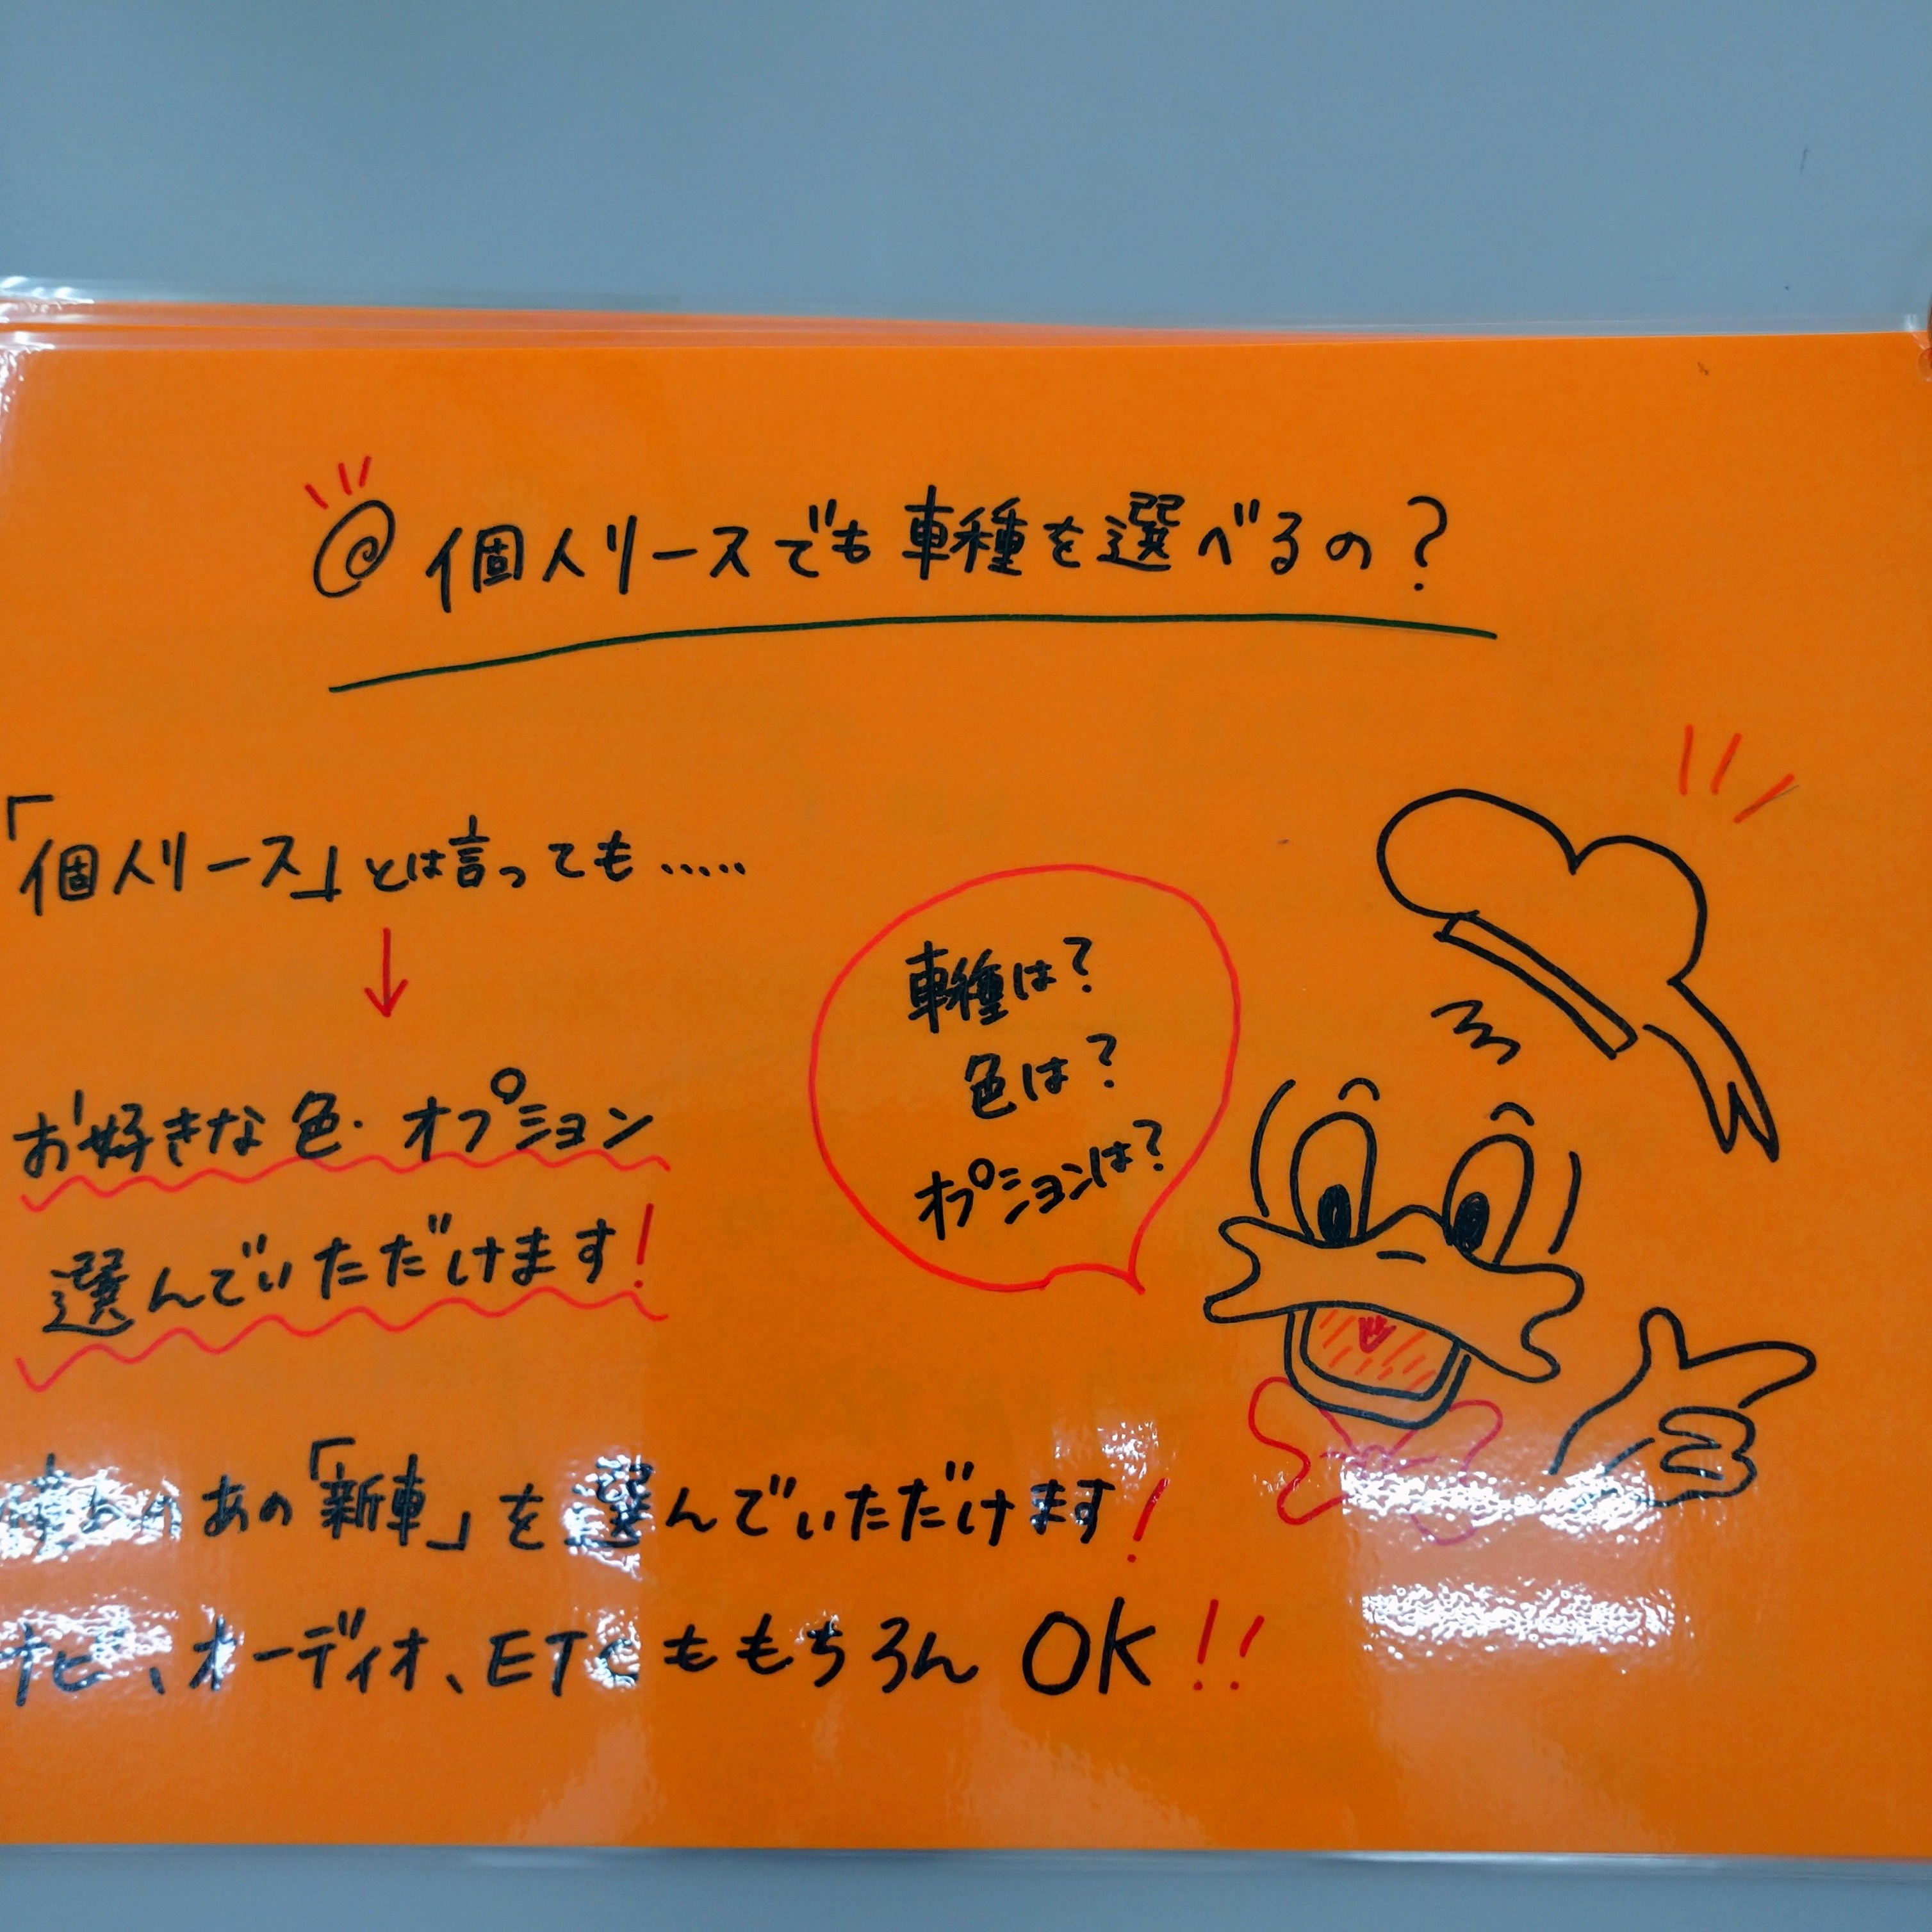 @個人リースでも車種を選べるの?
「個人リース」とは言っても.....
↓
お好きな色・オプション
選んでいただけます!
車種は?
色は?
オプションは?
あの「新車」を選んでいただけます!
ナビ、オーディオ、ETCももちろんOK!!